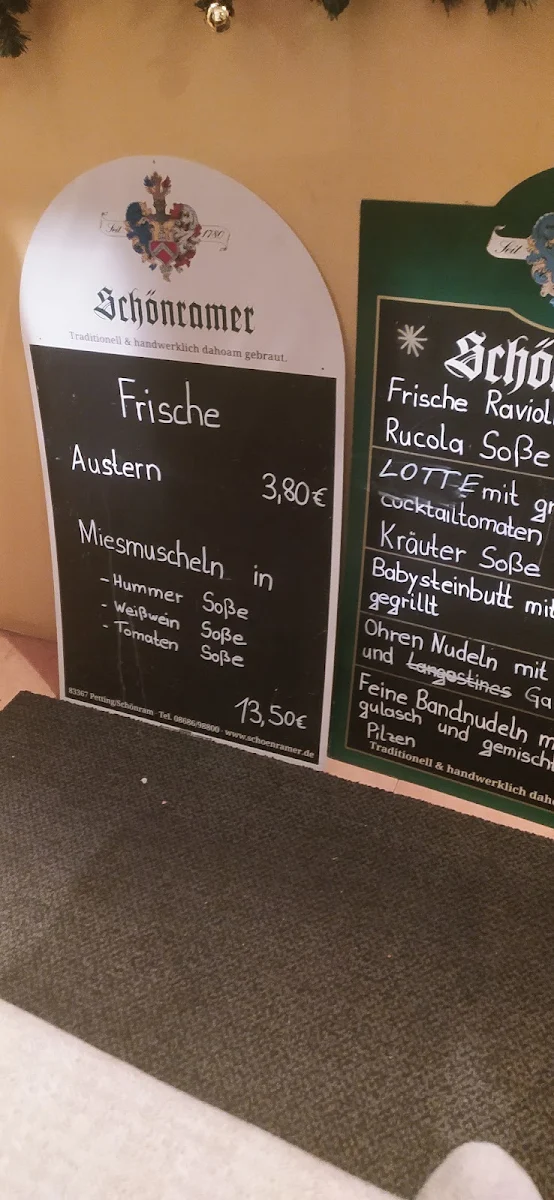 Seit 1780
Schönramer
Traditionell & handwerklich dahoam gebraut.
Frische
Austern
3,80€
Miesmuscheln in
- Hummer Soße
- Weißwein Soße
- Tomaten Soße
13,50€
83367 Petting/Schönram · Tel. 08686/98800 · www.schoenramer.de
Seit
Schö
Frische Raviol
Rucola Soße
LOTTE mit gr
Cocktailtomaten
Kräuter Soße
Babysteinbutt mit
gegrillt
Ohren Nudeln mit
und Langostines Ga
Feine Bandnudeln m
gulasch und gemischt
Pilzen
Traditionell & handwerklich dah